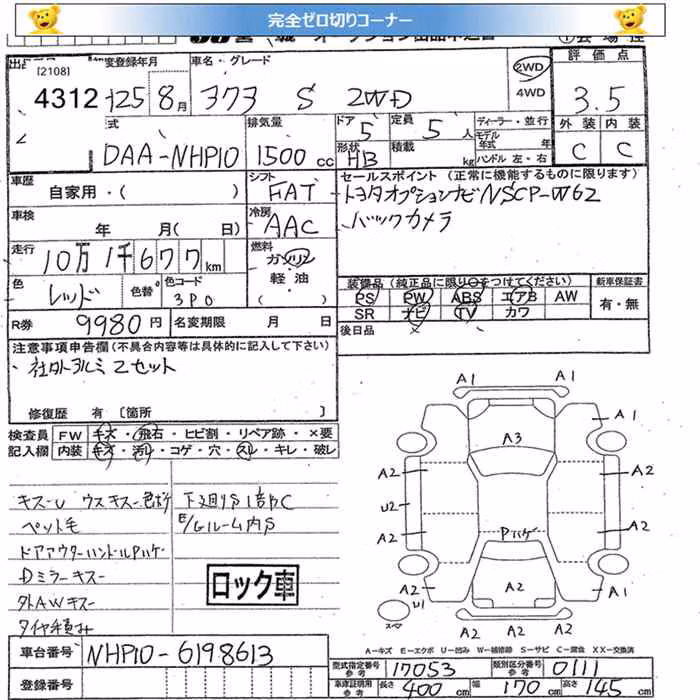 完全ゼロ切りコーナー
車名・グレード
評価点
[2108]
度登録年月
4312 25 8月 アクア S 2WD
2WD
4WD
3.5
式
排気量
ドア 定員
ディーラー・並行
外装 内装
DAA-NHP10 1500cc
5 5人
モデル年式 年
C C
形状 積載
HB kg
ハンドル 左・右
車歴 自家用・( )
シフト FAT
セールスポイント (正常に機能するものに限ります)
トヨタオプションナビNSCP-W62
バックカメラ
車検 年 月( 日)
冷房 AAC
走行 10万1千677km
燃料 ガソリン
軽・油
( )
色 レッド 色替 色コード 3P0
装備品 (純正品に限り○をつけてください) 新車保証書
PS PW ABS エアB AW 有・無
SR ナビ TV カワ
R券 9980円 名変期限 月 日
後日品
注意事項申告欄 (不具合内容等は具体的に記入して下さい)
社外アルミ 2セット
修復歴 有 〔箇所 〕
検査員 FW キズ・飛石・ヒビ割・リペア跡・×要
記入欄 内装 キズ・汚レ・コゲ・穴・スレ・キレ・破レ
A1 A1
A1
A3
A2 A2
U2
A2 A2
Pハゲ
A2 U1 A2 A2
A2
スペア
キズーU ウスキズー
下廻りS
ペット毛
E/GルームS
ドアアウターハンドルPハゲ
Dミラーキズー
外AWキズー
タイヤ積み
ロック車
A－キズ E－エクボ U－凹み W－補修跡 S－サビ C－腐食 XX－交換済
車台番号 NHP10-6198613
型式指定番号 参考 17053 類別区分番号 参考 0111
登録番号
車庫証明用 参考 長さ 400cm 幅 170cm 高さ 145cm